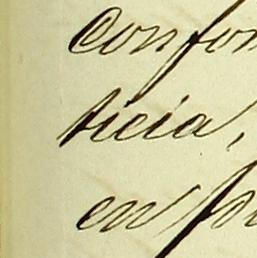 confor
ticia,
en fo